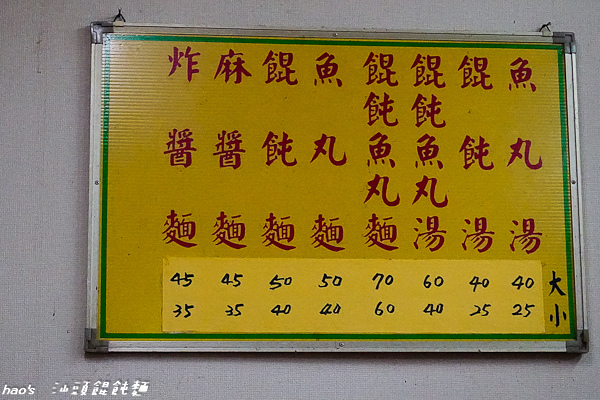 魚丸湯
餛飩湯
餛飩魚丸湯
餛飩魚丸麵
魚丸麵
餛飩麵
麻醬麵
炸醬麵
45 45 50 50 70 60 40 40 大
35 35 40 40 60 40 25 25 小
hao's 汕頭餛飩麵